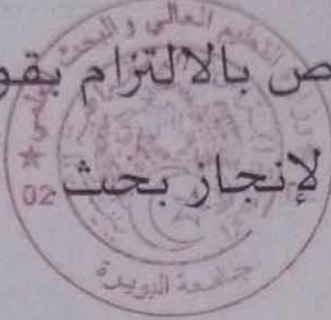 التعليم العالي و البحث
ص بالالتزام بقو
لإنجاز بحث
02
جامعة البويرة